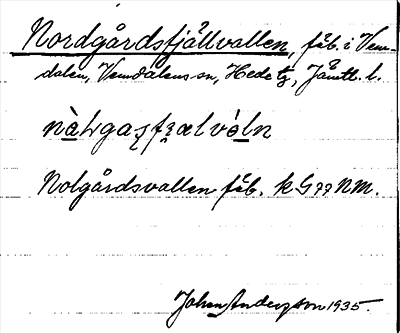 Nordgårdsfjällvallen, fäb. i Vem-
dalen, Vemdalens sn, Hede tg, Jämtl. l.
Nolgårdsvallen fäb. k G 77 NM.
Johan Anderzson 1935.